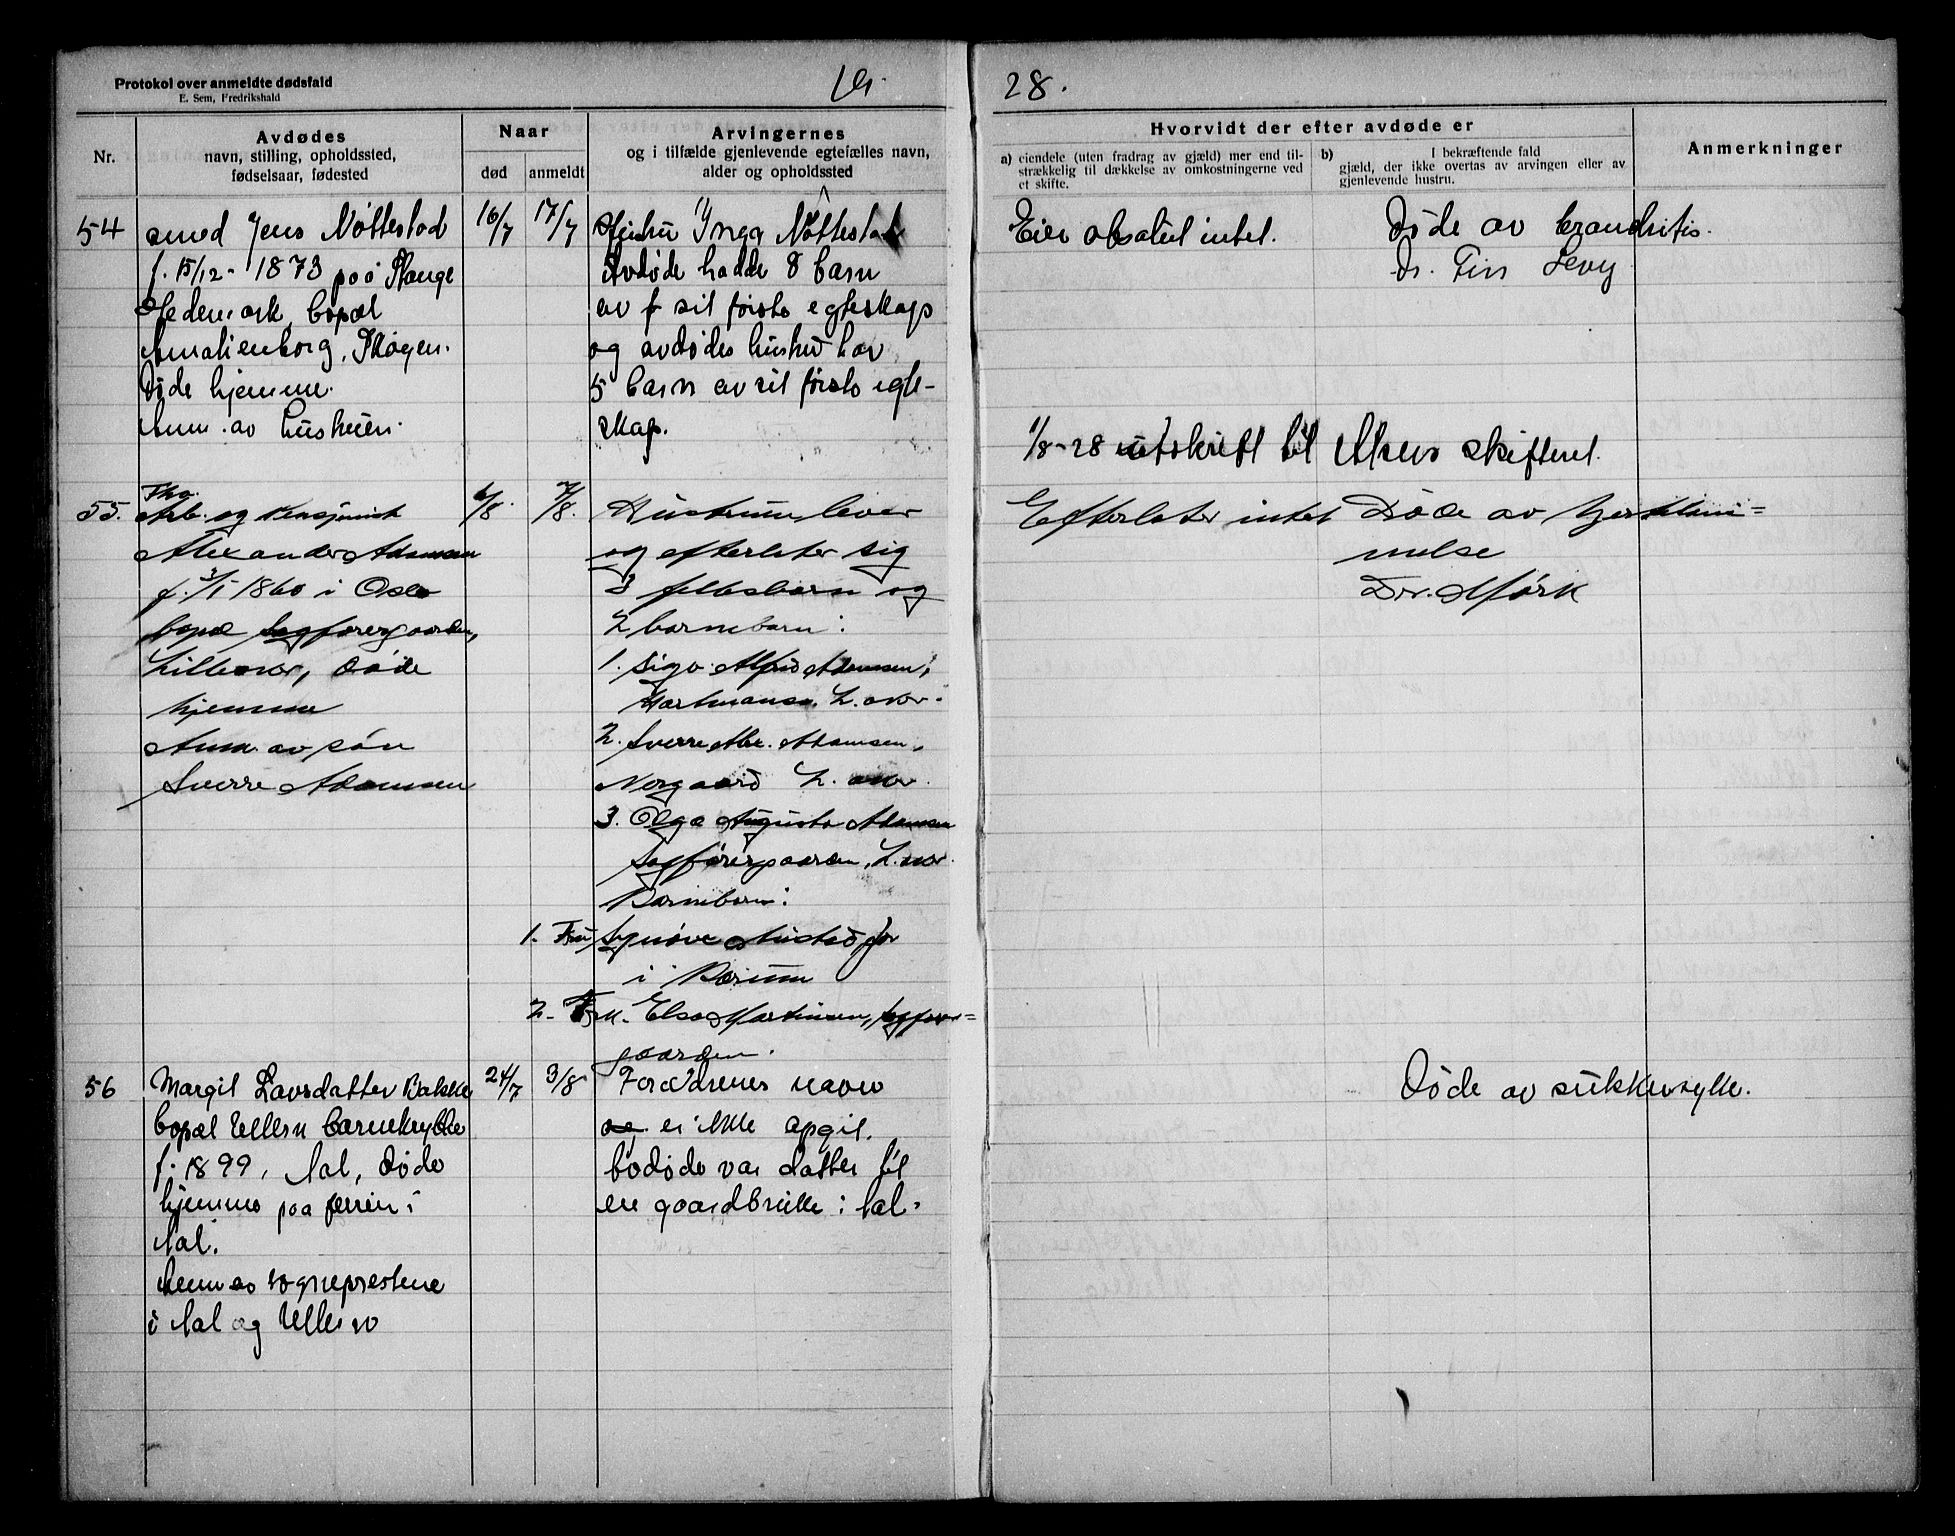 Protokol over anmeldte dødsfald
E. Sem, Fredrikshald
19
28.
Nr.
Avdødes
navn, stilling, opholdssted,
fødselsaar, fødested
Naar
død
anmeldt
Arvingernes
og i tilfælde gjenlevende egtefælles navn,
alder og opholdssted
Hvorvidt der efter avdøde er
a) eiendele (uten fradrag av gjæld) mer end til-
strækkelig til dækkelse av omkostningerne ved
et skifte.
b) I bekræftende fald
gjæld, der ikke overtas av arvingen eller av
gjenlevende hustru.
Anmerkninger
54
smed Jens Nøttestad
f. 15/12-1873 paa Stange
Hedemark, bopæl
Amalienborg, Skogen.
Døde hjemme.
Anm. av hustruen.
16/7
17/7
Hustru Inga Nøttestad
Avdøde hadde 8 barn
av sit første egteskap
og avdødes hustru har
5 barn av sit første egte-
skap.
Eier absolut intet.
Døde av bronchitis.
Dr. Finn Levy
1/8-28 utskrift til Akers skifteret.
55.
Arb. og pensjonist
Alexander Adamsen
f. 3/1 1860 i Oslo
bopæl Sagførergaarden,
Lilleaker, døde
hjemme
Anm. av søn
Sverre Adamsen
6/8.
7/8.
Hustruen lever
og efterlater sig
3 fellesbarn og
2 barnebarn:
1. Sigv. Alfred Adamsen,
L. aker.
2. Sverre Alex. Adamsen,
Norgaard L. aker.
3. Olga Augusta Adamsen
Sagførergaarden, L. aker.
Barnebarn:
1. Fru Synøve
i Bærum
2. Frk. Elsa Martinsen, Sagfører=
gaarden.
Efterlater intet
Døde av hjertelam=
melse
Dr. Mørk
56
Margit Larsdatter Bakke
bopæl Ullern barnekrybbe
f. 1899, Aal, døde
hjemme paa ferien i
Aal.
Anm av sogneprestene
i Aal og Ullern
24/7
3/8
Forældrenes navn
er ikke opgit.
Avdøde var datter til
en gaardbruker i Aal.
Døde av sukkersyke.